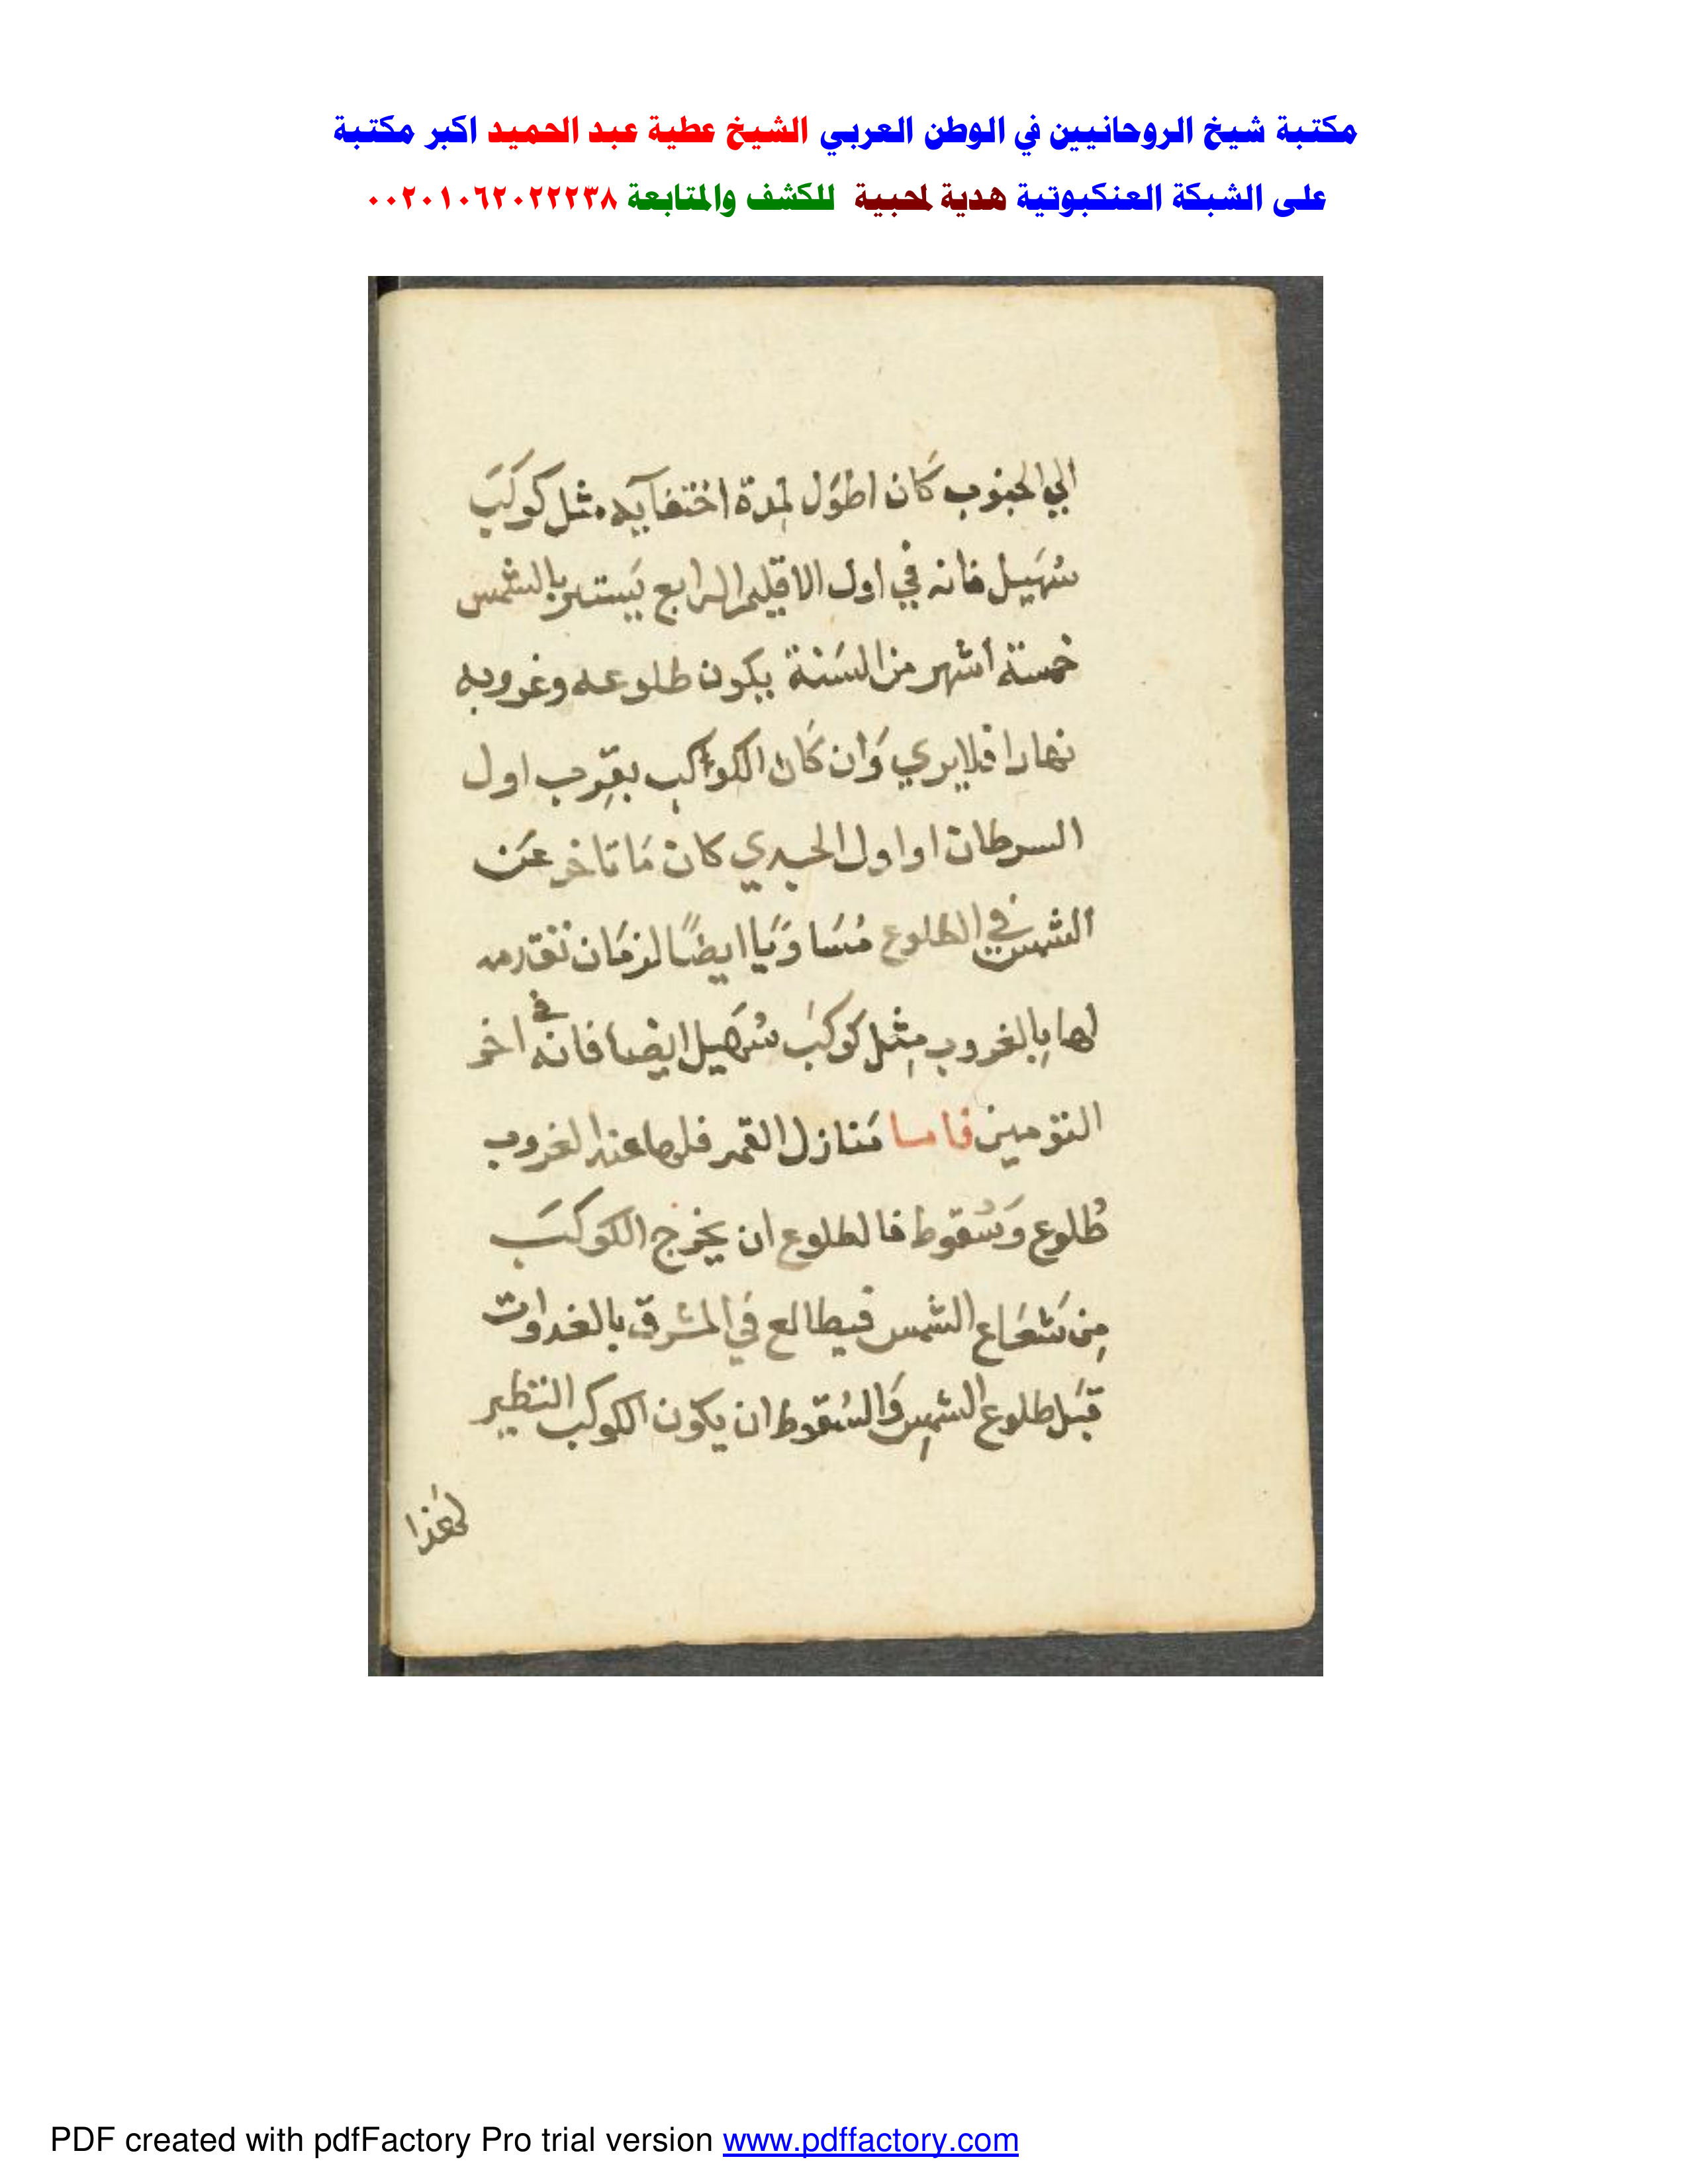 مكتبة شيخ الروحانيين في الوطن العربي الشيخ عطية عبد الحميد اكبر مكتبة
على الشبكة العنكبوتية هدية لمحبية للكشف والمتابعة ٠٠٢٠١٠٦٢٠٢٢٢٣٨
الي الجنوب كَان اطوَل لمِدة اختفآيه مثل كوكَبَ
سُهَيل فانه في اول الاقليم الرابع يَستتر بالشمس
خمسة أشهر من السَنة يكون طلوعه وغروبه
نهارا فلا يري وَان كَان الكوكب بقِرب اول
السرطان او اول الجدي كان مَا تاخر عَن
الشمس في الطلوع مُسَاويًا ايضًا لزمَان تقدمه
لها بِالغروب مِثل كوكبَ سُهَيل ايضا فانه في اخر
التؤمين فاما مَنازل القمر فلها عند الغروب
طُلوع وَسُقوط فالطلوع ان يخرج الكوكبَ
مِن شعَاع الشمس فيطالع في المشرق بالغدوات
قبَل طلوع الشمسِ وَالسُقوط ان يكون الكوكب النظير
لهَذا
PDF created with pdfFactory Pro trial version www.pdffactory.com